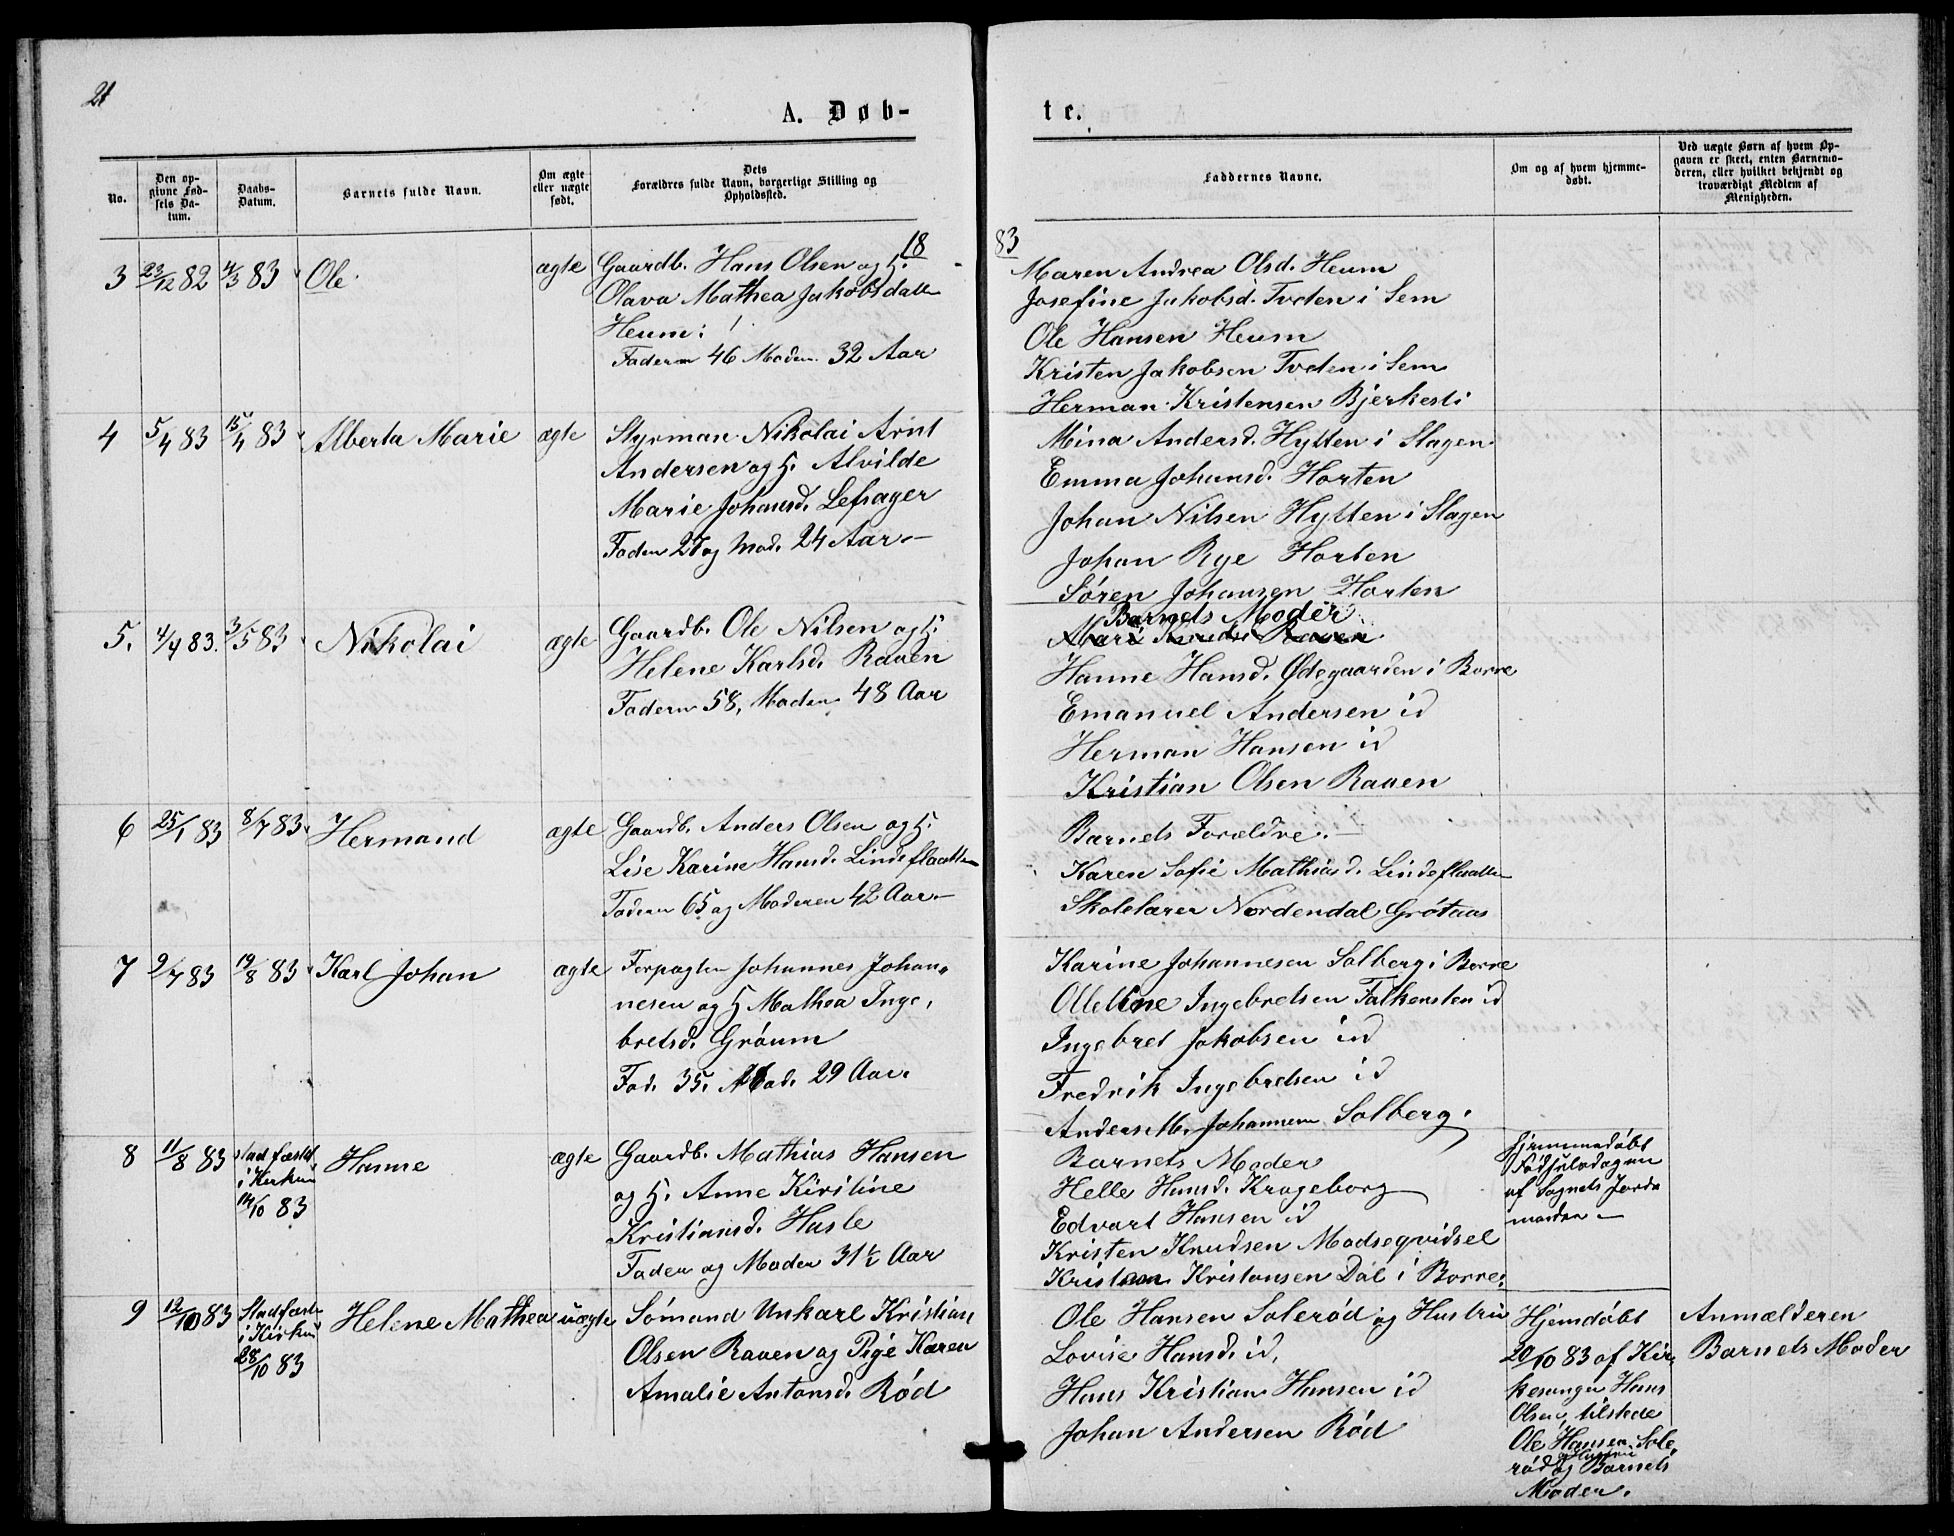 21
A. Døb-
te.
No.
Den op-
givne Fød-
sels Da-
tum.
Daabs-
Datum.
Barnets fulde Navn.
Om ægte
eller uægte
født.
Dets
Forældres fulde Navn, borgerlige Stilling og
Opholdssted.
Faddernes Navne.
Om og af hvem hjemme-
døbt.
Ved uægte Børn af hvem Op-
gaven er skeet, enten Barnemo-
deren, eller hvilket bekjendt og
troværdigt Medlem af
Menigheden.
18
83
3 23/12 82 4/3 83 Ole ægte
Gaardb. Hans Olsen og H.
Olava Mathea Jakobsdatter
Heum:
Faderen 46 Moderen 32 Aar
Maren Andrea Olsd. Heum
Josefine Jakobsd. Tveten i Sem
Ole Hansen Heum
Kristen Jakobsen Tveten i Sem
Herman Kristensen Bjerkesti
4 5/4 83 15/4 83 Alberta Marie ægte
Styrman Nikolai Arnt
Andersen og H. Alvilde
Marie Johansd. Lefsager
Faderen 27 og Mod. 24 Aar.-
Mina Andersd. Hytten i Slagen
Emma Johansd. Horten
Johan Nilsen Hytten i Slagen
Johan Rye Horten
Søren Johansen Horten
5. 4/4 83. 3/5 83 Nikolai ægte
Gaardb. Ole Nilsen og H.
Helene Karlsd. Raaen
Faderen 58, Moderen 48 Aar
Barnets Moder
Hanne Hansd. Ødegaarden i Borre
Emanuel Andersen id
Herman Hansen id
Kristian Olsen Raaen
6 25/1 83 8/7 83 Hermand ægte
Gaardb. Anders Olsen og H.
Lise Karine Hansd. Lindeflaatten
Faderen 65 og Moderen 42 Aar.-
Barnets Forældre.-
Karen Sofie Mathiasd. Lindeflaatten
Skolelærer Nordendal Grøtaas
7 9/7 83 19/8 83 Karl Johan ægte
Forpagter Johannes Johan-
nesen og H Mathea Inge-
bretsd. Grøum
Fad. 35. Mod. 29 Aar.
Karine Johannesen Solberg i Borre
Olleline Ingebretsen Falkensten id
Ingebret Jakobsen id
Fredrik Ingebretsen id
Anders M. Johannesen Solberg.
8 11/8 83 stadfæstet
i Kirken
14/10 83
Hanne ægte
Gaardb. Mathias Hansen
og H. Anne Kirstine
Kristiansd. Hasle
Fader og Moder 31½ Aar
Barnets Moder
Helle Hansd. Krageborg
Edvart Hansen id
Kristen Knudsen Madseqvidsel
Kristian Kristansen Dal i Borre.
Hjemmedøbt
Fødselsdagen
af Sognets Jorde
moder.-
9 12/10 83 Stadfæstet
i Kirken
28/10 83
Helene Mathea uægte
Sømand Unkarl Kristian
Olsen Raaen og Pige Karen
Amalie Antonsd. Rød
Ole Hansen Solerød og Hustru
Lovise Hansd. id.
Hans Kristian Hansen id
Johan Andersen Rød
Hjemdøbt
20/10 83 af Kir-
kesanger Hans
Olsen, tilstede
Ole Hansen Sole
og Hustru
rød og Barnets
Moder.
Anmælderen
Barnets Moder